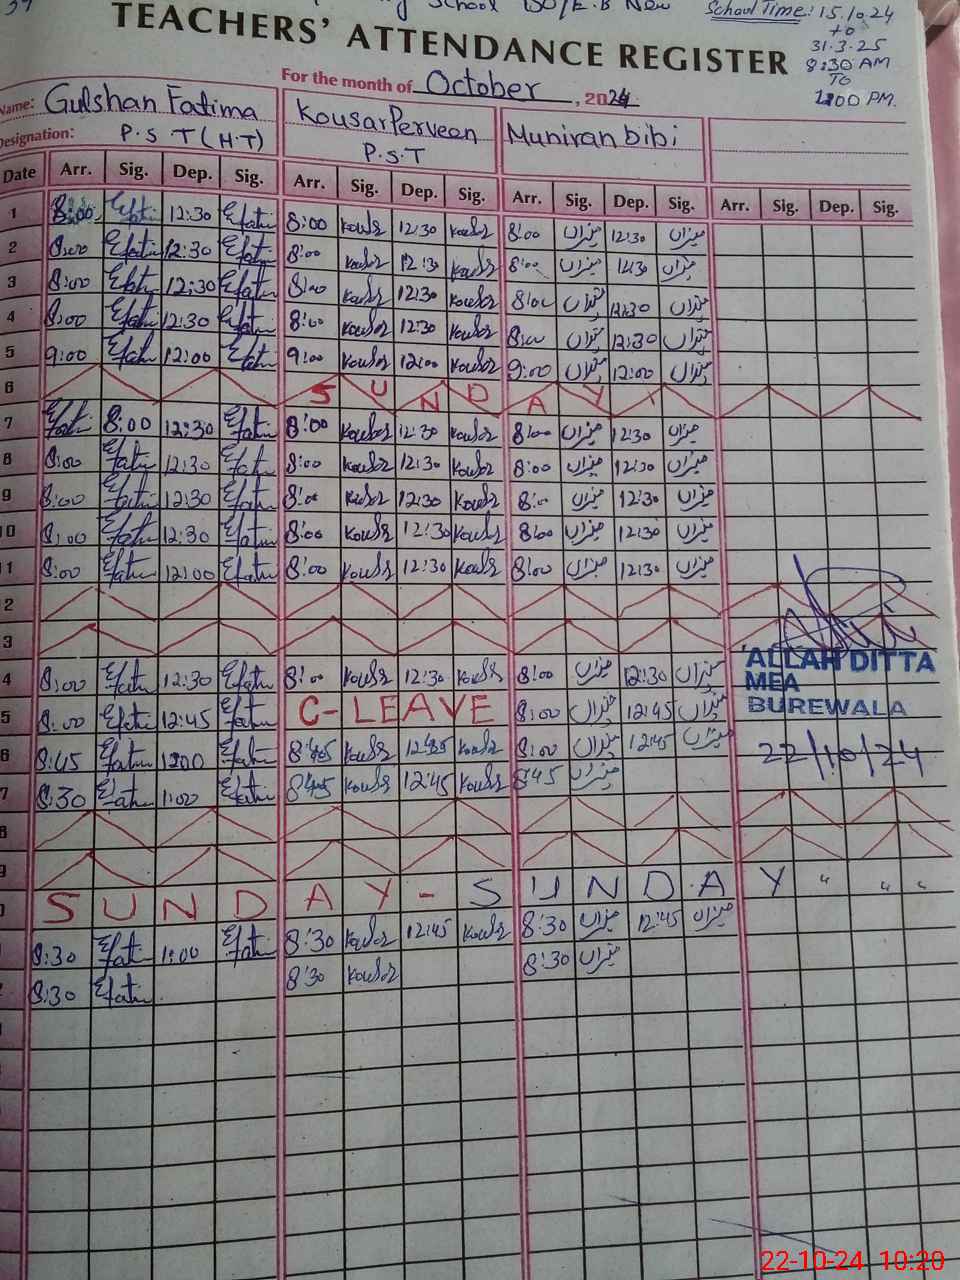 School 150/E.B New
School Time: 15.10.24
to
31.3.25
8:30 AM
To
1:00 PM.
TEACHERS' ATTENDANCE REGISTER
For the month of October, 2024
Name: Gulshan Fatima Kousar Perveen Muniran bibi
Designation: P.S T (H.T) P.S.T
Date Arr. Sig. Dep. Sig. Arr. Sig. Dep. Sig. Arr. Sig. Dep. Sig. Arr. Sig. Dep. Sig.
1 8:00 Efatim 12:30 Efatim 8:00 Kousar 12:30 Kousar 8:00 میزاں 12:30 میزاں
2 8:00 Efatim 12:30 Efatim 8:00 Kousar 12:30 Kousar 8:00 میزاں 12:30 میزاں
3 8:00 Efatim 12:30 Efatim 8:00 Kousar 12:30 Kousar 8:00 میزاں 12:30 میزاں
4 8:00 Efatim 12:30 Efatim 8:00 Kousar 12:30 Kousar 8:00 میزاں 12:30 میزاں
5 9:00 Efatim 12:00 Efatim 9:00 Kousar 12:00 Kousar 9:00 میزاں 12:00 میزاں
6 S U N D A Y
7 Efatim 8:00 12:30 Efatim 8:00 Kousar 12:30 Kousar 8:00 میزاں 12:30 میزاں
8 8:00 Efatim 12:30 Efatim 8:00 Kousar 12:30 Kousar 8:00 میزاں 12:30 میزاں
9 8:00 Efatim 12:30 Efatim 8:00 Kousar 12:30 Kousar 8:00 میزاں 12:30 میزاں
10 8:00 Efatim 12:30 Efatim 8:00 Kousar 12:30 Kousar 8:00 میزاں 12:30 میزاں
11 8:00 Efatim 12:00 Efatim 8:00 Kousar 12:30 Kousar 8:00 میزاں 12:30 میزاں
2
3
4 8:00 Efatim 12:30 Efatim 8:00 Kousar 12:30 Kousar 8:00 میزاں 12:30 میزاں
ALLAH DITTA
MEA
BUREWALA
22/10/24
5 8:00 Efatim 12:45 Efatim C-LEAVE 8:00 میزاں 12:45 میزاں
6 8:45 Efatim 1:00 Efatim 8:45 Kousar 12:45 Kousar 8:00 میزاں 12:45 میزاں
7 8:30 Efatim 1:00 Efatim 8:45 Kousar 12:45 Kousar 8:45 میزاں
8
9
0 S U N D A Y - S U N D A Y " " "
8:30 Efatim 1:00 Efatim 8:30 Kousar 12:45 Kousar 8:30 میزاں 12:45 میزاں
8:30 Efatim 8:30 Kousar 8:30 میزاں
22-10-24 10:20